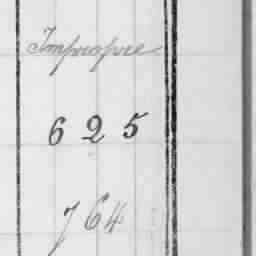 Impropre
625
764